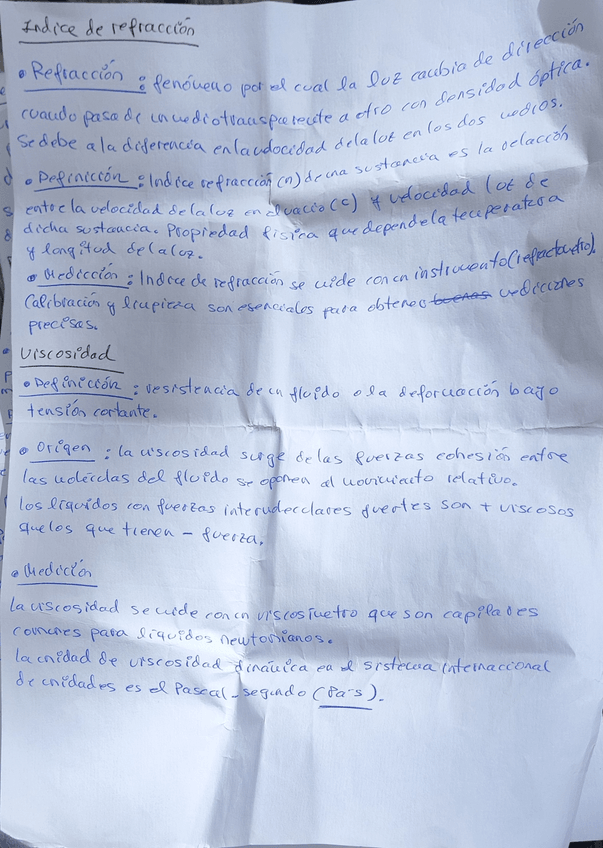 Indice de refracción
• Refracción : fenómeno por el cual la luz cambia de dirección
cuando pasa de un medio transparente a otro con densidad óptica.
Se debe a la diferencia en la velocidad de la luz en los dos medios.
• Definicción : Indice refracción (n) de una sustancia es la relación
entre la velocidad de la luz en el vacio (c) y velocidad luz de
dicha sustancia. Propiedad física que depende la temperatura
y longitud de la luz.
• Medicción : Indice de refracción se mide con un instrumento (refractometro).
Calibración y limpieza son esenciales para obtener buenas medicciones
precisas.
Viscosidad
• Definicción : resistencia de un fluido a la deformacción bajo
tensión cortante.
• Origen : la viscosidad surge de las fuerzas cohesión entre
las moléculas del fluido se oponen al movimiento relativo.
los líquidos con fuerzas intermoleculares fuertes son + viscosos
que los que tienen - fuerza.
• Medición
la viscosidad se mide con un viscosímetro que son capilares
comunes para líquidos newtonianos.
la unidad de viscosidad dinámica en el sistema internaccional
de unidades es el Pascal-segundo (Pa·s).